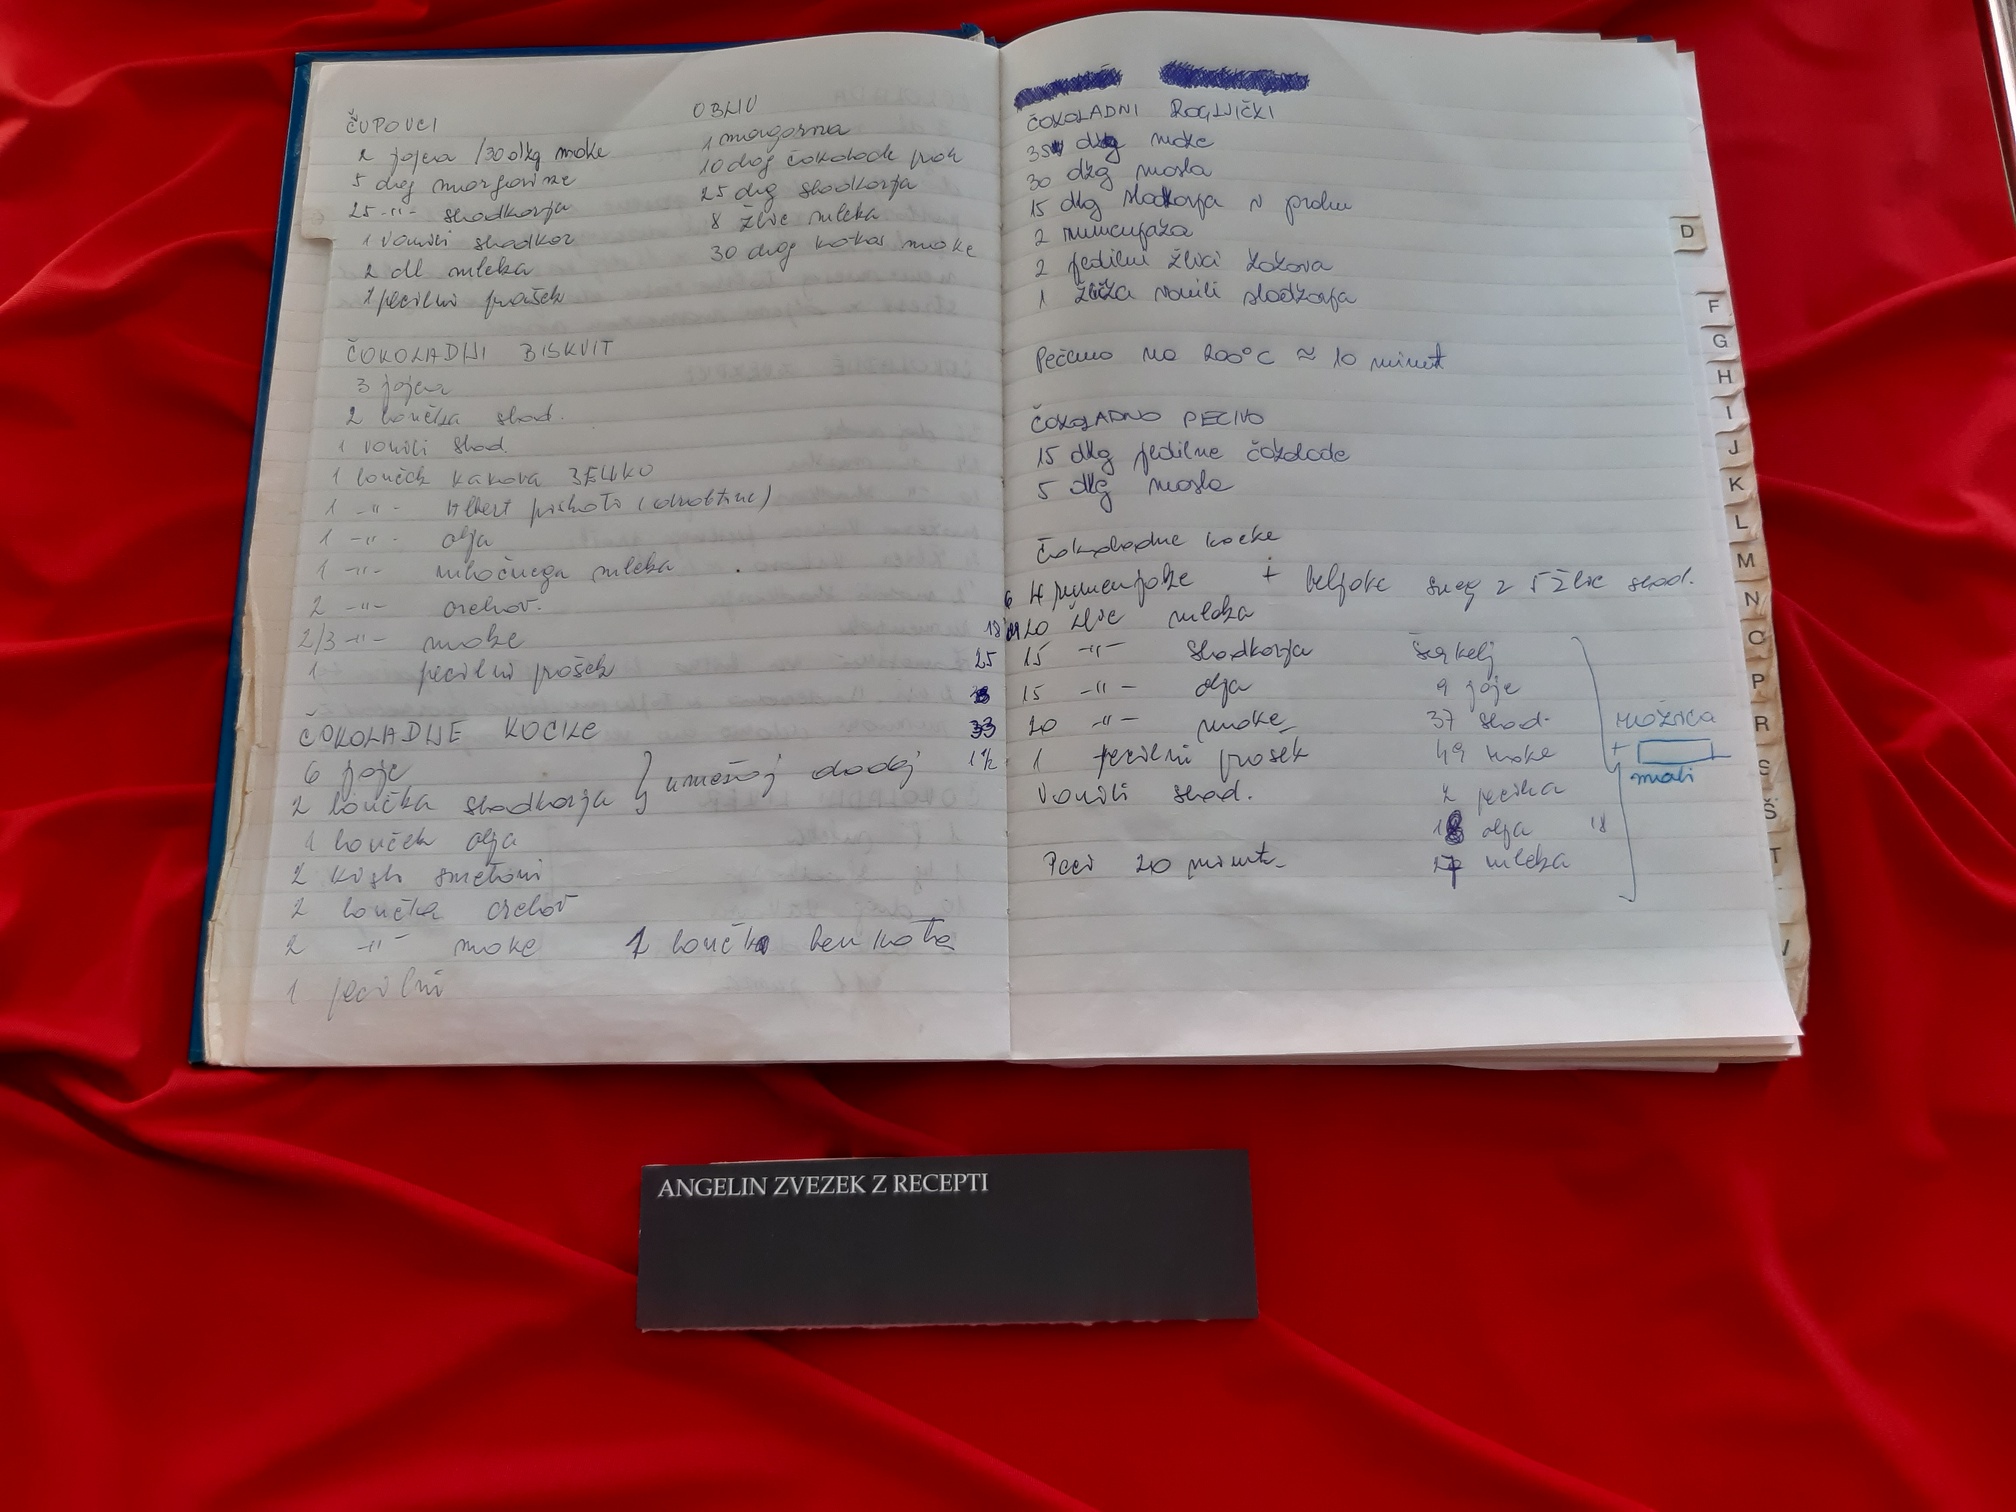 ČUPOVCI
2 jajca /30 dkg moke
5 dkg margarine
25 -"- sladkorja
1 vanili sladkor
2 dl mleka
1 pecilni prašek
OBLIV
1 margarina
10 dag čokolade prah
25 dkg sladkorja
8 žlic mleka
30 dag kokos moke
ČOKOLADNI BISKVIT
3 jajca
2 lončka slad.
1 vanili slad.
1 lonček kakova BENKO
1 -"- Albert piškoti (drobtine)
1 -"- olja
1 -"- mlačnega mleka
2 -"- orehov.
2/3 -"- moke
1 pecilni prašek
ČOKOLADNE KOCKE
6 jajc
2 lončka sladkorja } umešaj dodaj
1 lonček olja
2 kisli smetani
2 lončka orehov
2 -"- moke 1 lončka benkota
1 pecilni
ČOKOLADNI ROGLJIČKI
35 dkg moke
30 dkg masla
15 dkg sladkorja v prahu
2 rumenjaka
2 jedilni žlici kakova
1 žlička vanili sladkorja
Pečemo na 200°C ≈ 10 minut
ČOKOLADNO PECIVO
15 dkg jedilne čokolade
5 dkg masla
Čokoladne kocke
6 4 rumenjake + beljake sneg z 5 žlic slad.
18 20 žlic mleka
25 15 -"- sladkorja
15 -"- olja
33 20 -"- moke
1 1/2 1 pecilni prašek
Vanili slad.
Peci 20 minut
Šerkelj
9 jajc
37 slad.
49 moke
2 pecilna
18 olja 18
27 mleka
možica
+
mali
D
F
G
H
I
J
K
L
M
N
O
P
R
S
Š
T
V
ANGELIN ZVEZEK Z RECEPTI